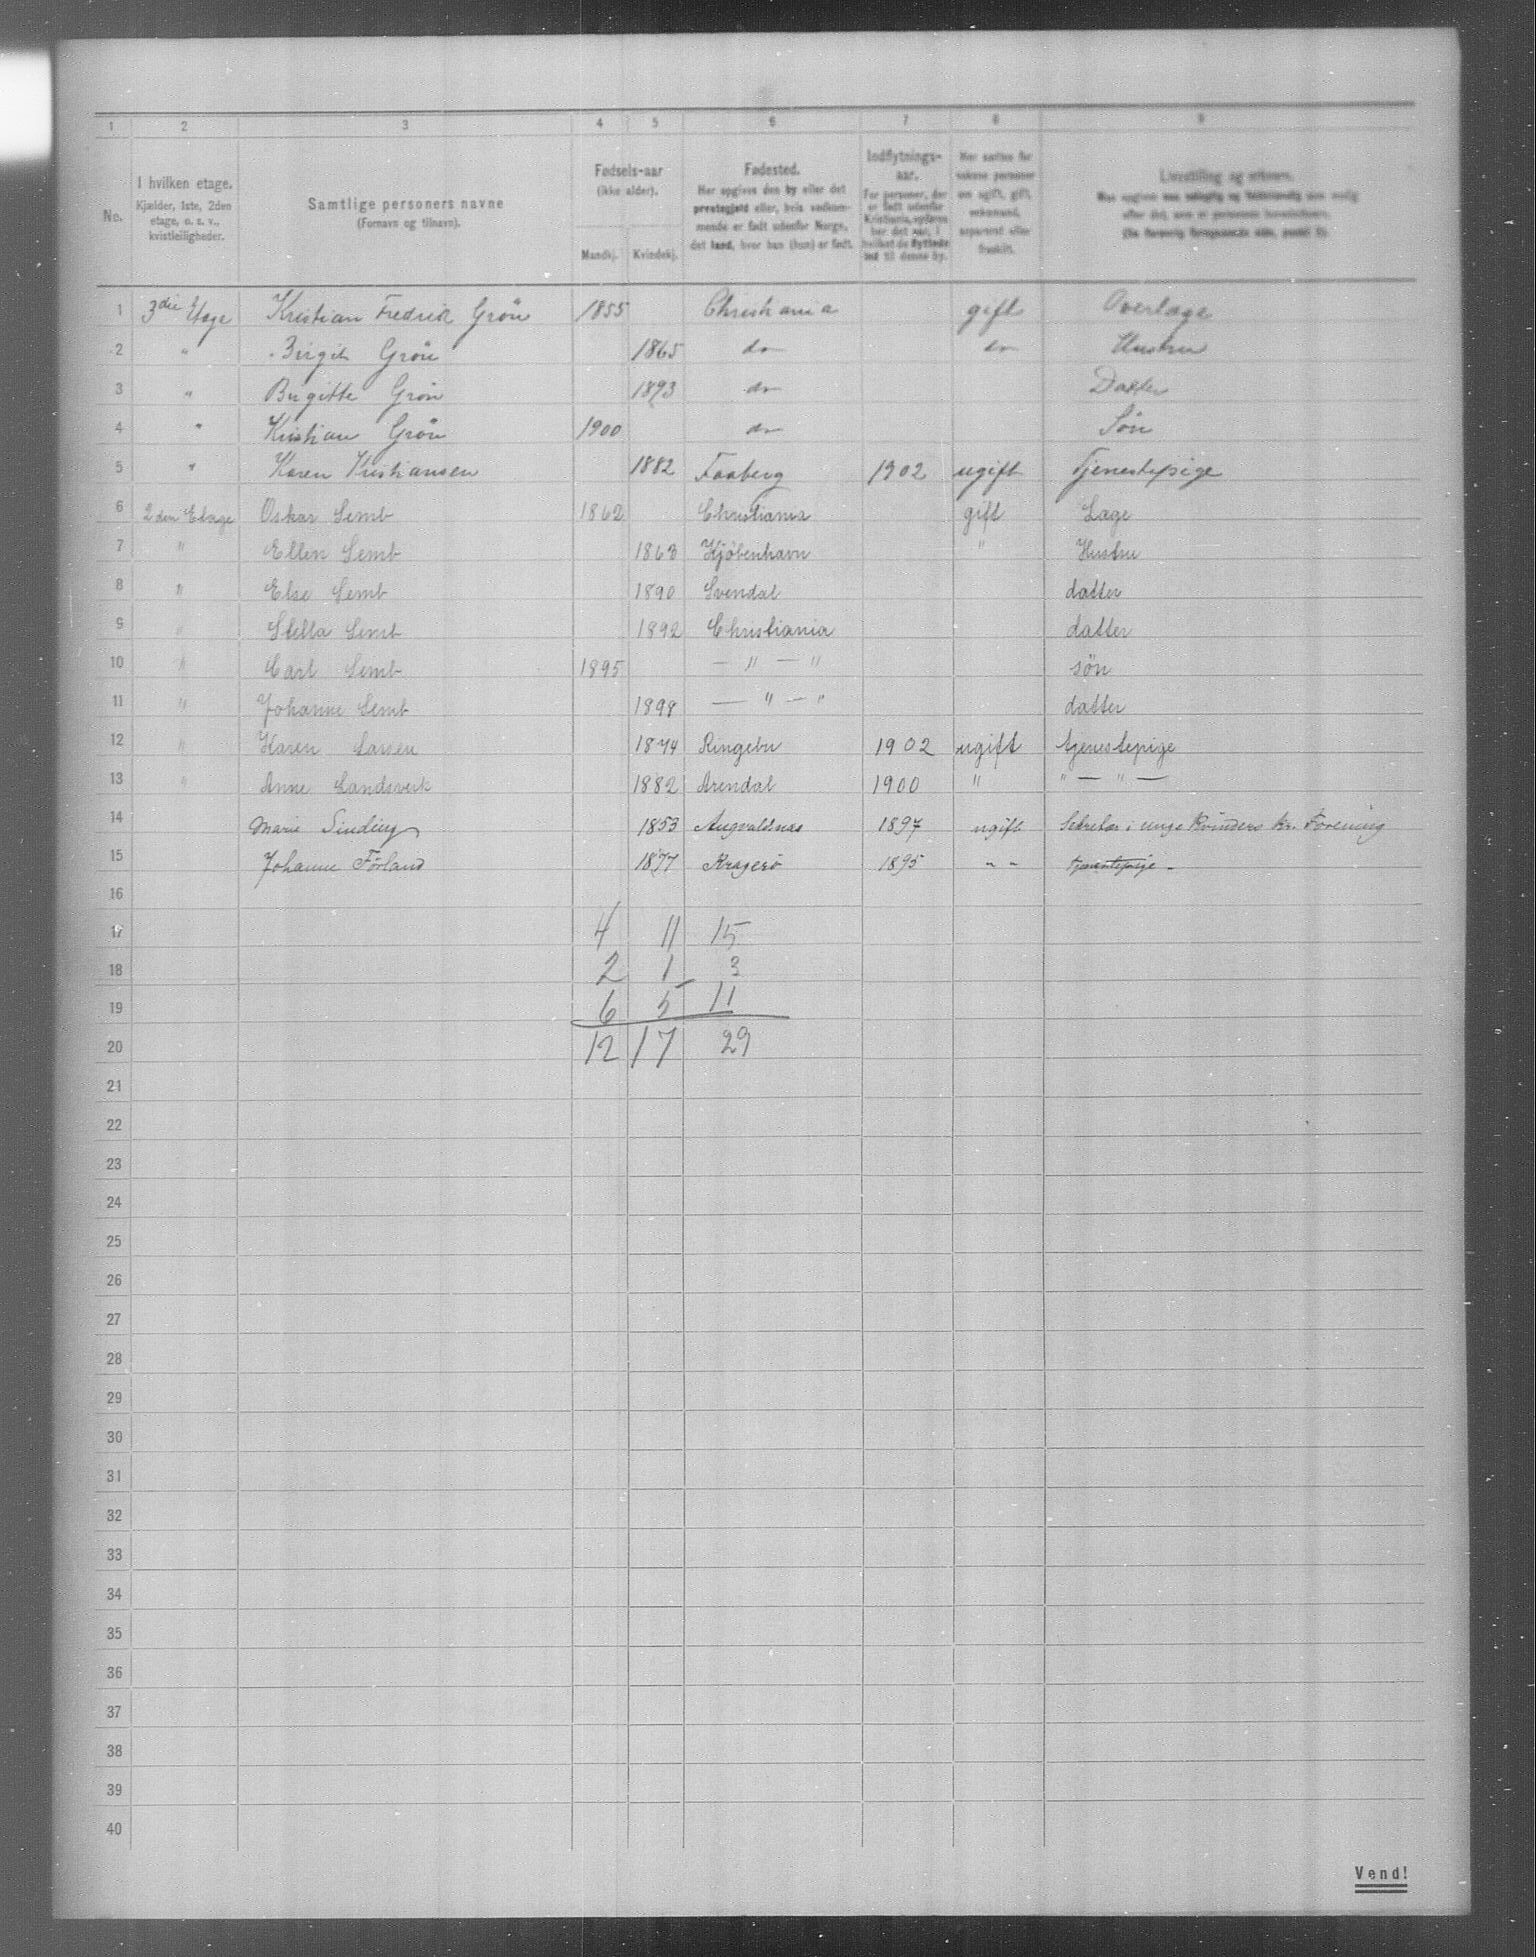 1 2 3 4 5 6 7 8 9
No. I hvilken etage. Kjælder, 1ste, 2den etage, o. s. v., kvistleiligheder. Samtlige personers navne (Fornavn og tilnavn). Fødsels-aar (ikke alder). Mandkj. Kvindekj. Fødested. Her opgives den by eller det prestegjeld eller, hvis vedkommende er født udenfor Norge, det land, hvor han (hun) er født. Indflytnings-aar. For personer, der er født udenfor Kristiania, opføres her det aar, i hvilket de flyttede ind til denne by. Livsstilling og erhverv.
1 3die Etage Kristian Fredrik Grön 1855 Christiania gift Overlæge
2 " Birgit Grön 1865 do do Hustru
3 " Birgitte Grön 1893 do Datter
4 " Kristian Grön 1900 do Sön
5 " Karen Kristiansen 1882 Faaberg 1902 ugift Tjenestepige
6 2den Etage Oskar Semb 1862 Christiania gift Læge
7 " Ellen Semb 1863 Kjöbenhavn " Hustru
8 " Else Semb 1890 Svendal datter
9 " Stella Semb 1892 Christiania datter
10 " Carl Semb 1895 — " — " sön
11 " Johanne Semb 1898 — " — " datter
12 " Karen Larsen 1874 Ringebu 1902 ugift tjenestepige
13 " Anne Landsverk 1882 Arendal 1900 " " — " —
14 Marie Sinding 1853 Augvaldsnæs 1897 ugift Sekretær i unge Kvinders kr. Forening
15 Johanne Förland 1877 Kragerö 1895 " " tjenestepige
16
17 4 11 15
18 2 1 3
19 6 5 11
20 12 17 29
21
22
23
24
25
26
27
28
29
30
31
32
33
34
35
36
37
38
39
40
Vend!